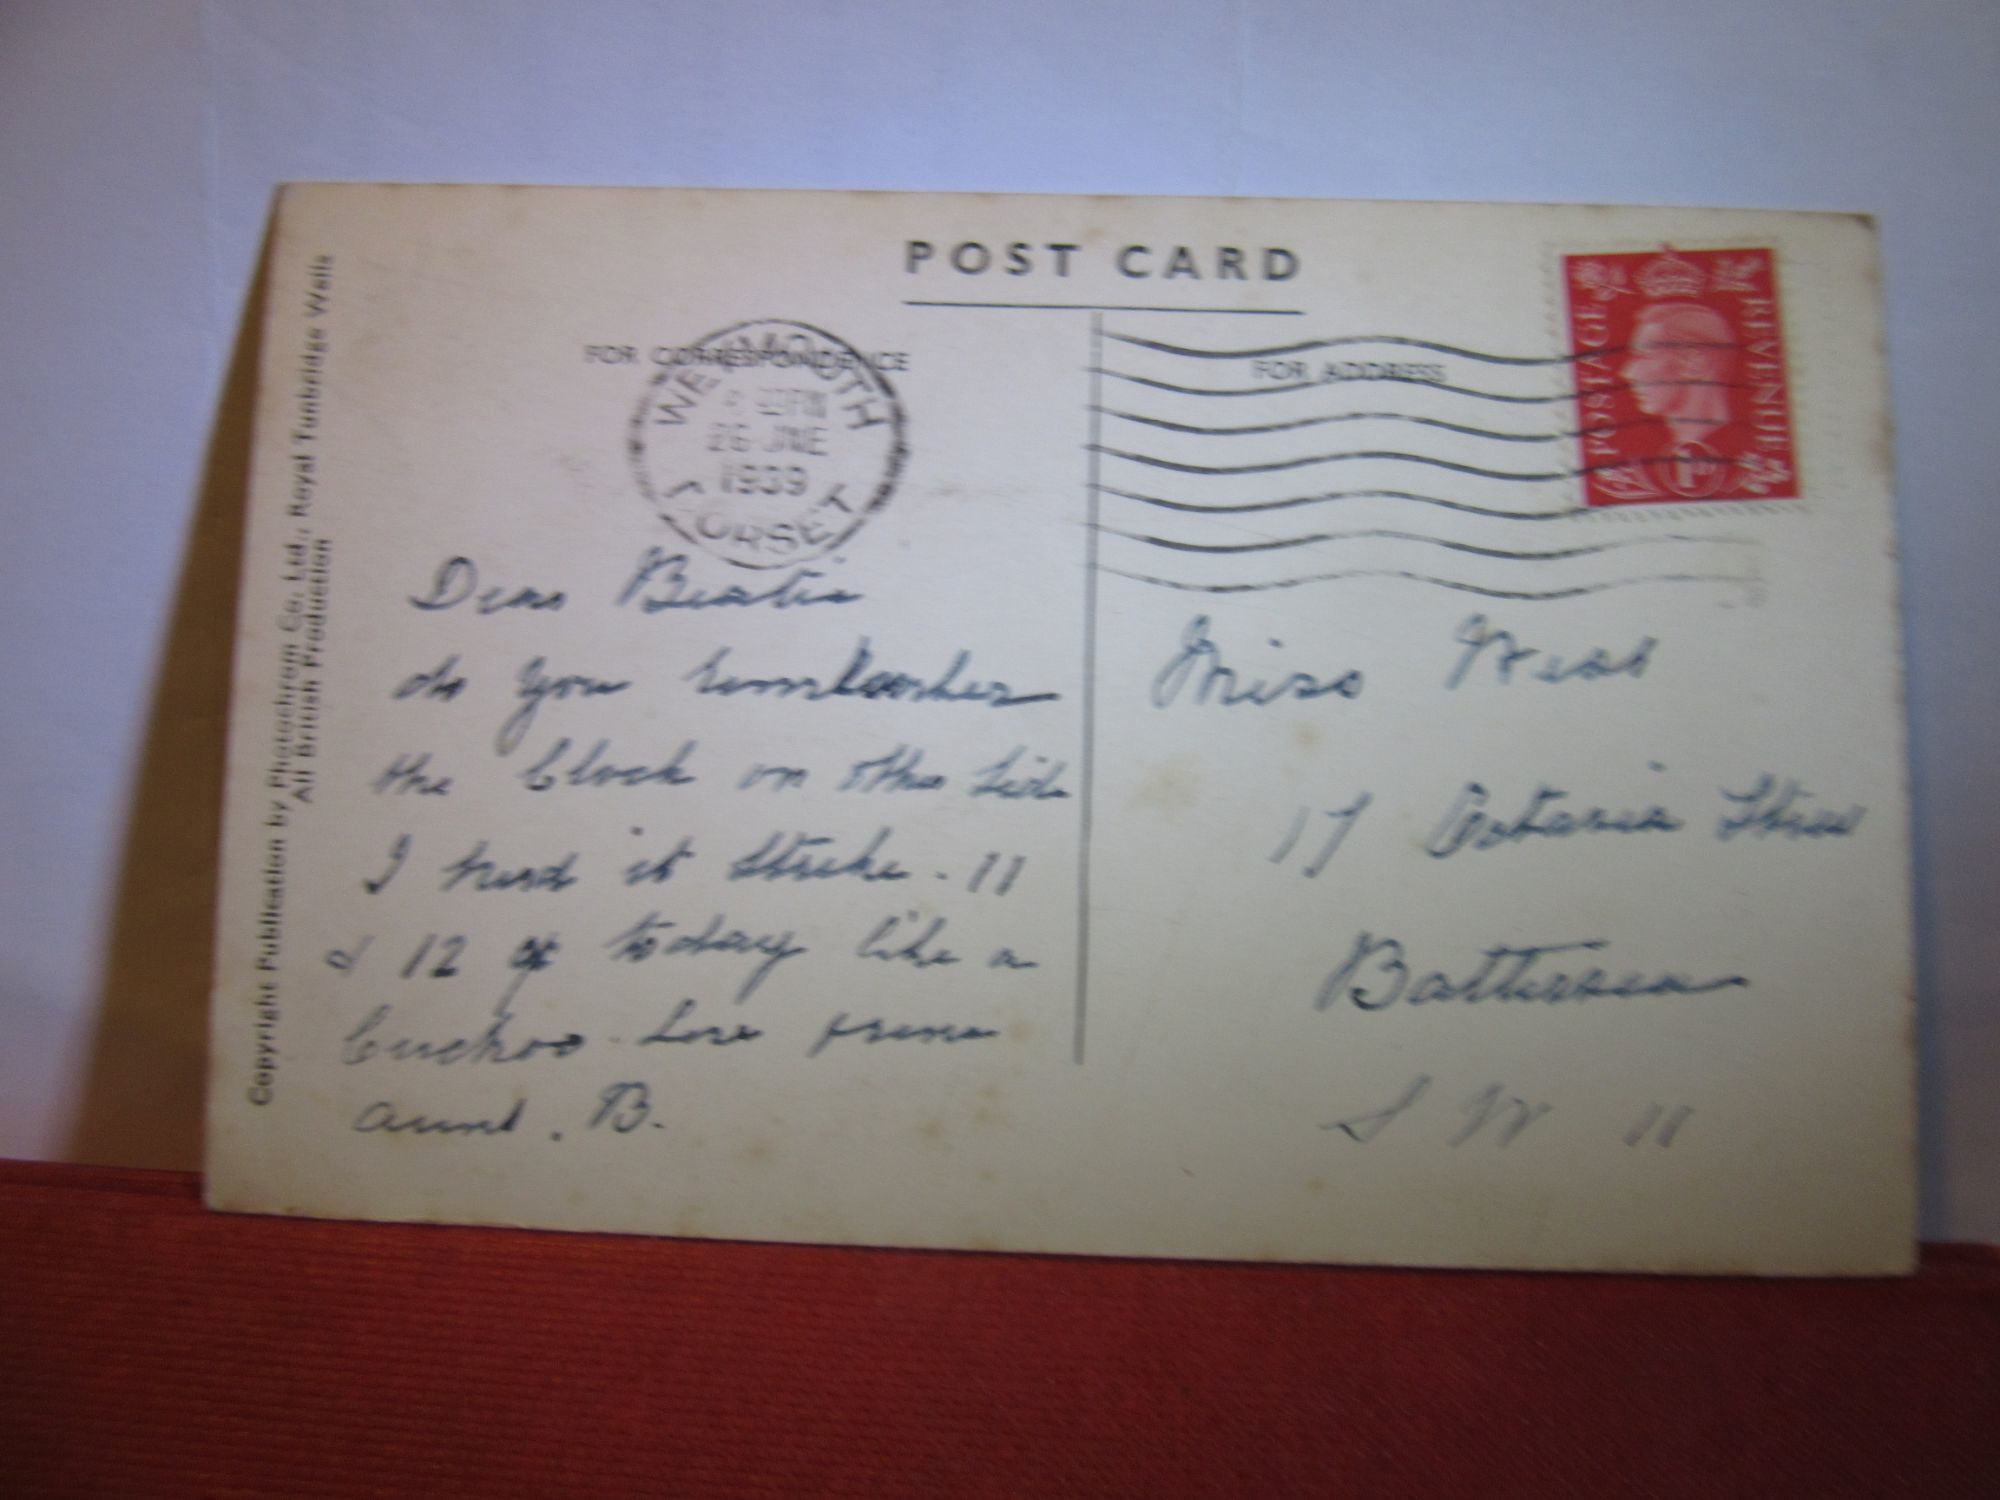 POST CARD
FOR CORRESPONDENCE
FOR ADDRESS
WEYMOUTH
PM
26 JNE
1939
DORSET
POSTAGE
REVENUE
1D
Dear Beatie
do you
the Clock on the Side
I herd it Strike . 11
& 12 today like a
Cuckoo . Love
Aunt . B.
Miss West
17 Octavia Street
Battersea
S W 11
Copyright Publication by Photochrom Co. Ltd., Royal Tunbridge Wells
All British Production